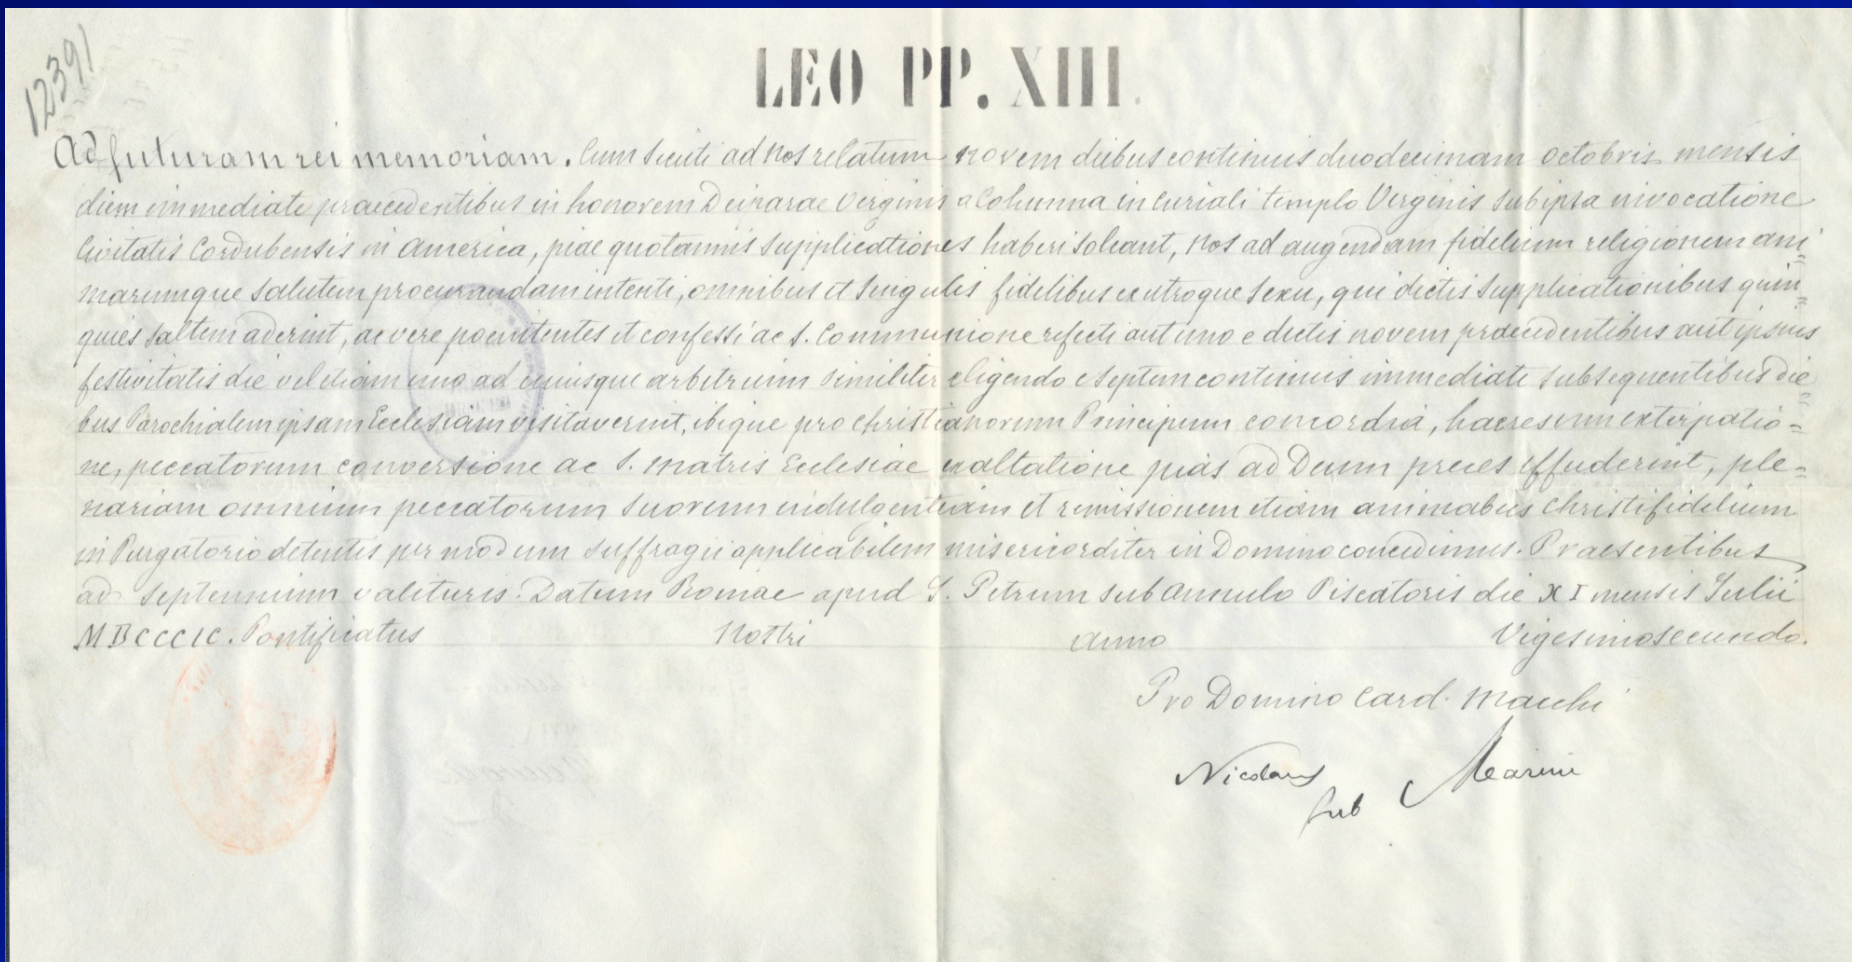 12391
LEO PP. XIII.
Ad futuram rei memoriam. Cum sicuti ad Nos relatum novem diebus continuis duodecimam Octobris mensis
diem immediate praecedentibus in honorem Deiparae Virginis a Columna in curiali templo Virginis sub ipsa invocatione
Civitatis Cordubensis in America, piae quotannis supplicationes haberi soleant, Nos ad augendam fidelium religionem ani=
marumque salutem procurandam intenti, omnibus et singulis fidelibus ex utroque sexu, qui dictis supplicationibus quin=
quies saltem aderint, ac vere poenitentes et confessi ac S. Communione refecti aut uno e dictis novem praecedentibus aut ipsius
festivitatis die vel etiam uno ad cuiusque arbitrium similiter eligendo e septem continuis immediate subsequentibus die=
bus Parochialem ipsam Ecclesiam visitaverint, ibique pro christianorum Principum concordia, haeresum extirpatio=
ne, peccatorum conversione ac S. Matris Ecclesiae exaltatione pias ad Deum preces effuderint, ple=
nariam omnium peccatorum suorum indulgentiam et remissionem etiam animabus Christifidelium
in Purgatorio detentis per modum suffragii applicabilem misericorditer in Domino concedimus. Praesentibus
ad Septennium valituris. Datum Romae apud S. Petrum sub Annulo Piscatoris die XI mensis Iulii
MDCCCIC. Pontificatus Nostri anno Vigesimosecundo.
Pro Domino Card. Macchi
Nicolaus Marini
Sub